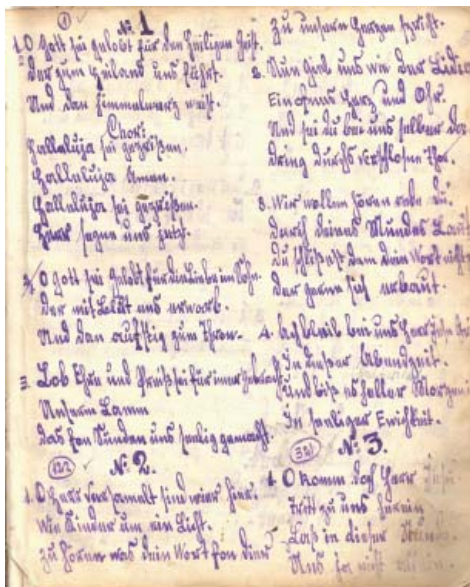 ①
№ 1
1. O Gott sei gelobt für den heiligen Geist.
Der zum Heiland uns führt.
Und den Himmelsweg weist.
Chor:
Halleluja sei gepriesen.
Halleluja Amen.
Halleluja sei gepriesen.
Herr segne uns jetz.
2. O Gott sei gelobt für die Liebe im Sohn.
Der mit uns erwarb.
Und dan zum Thron.
3. Lob Ehr und Preiß sei für immer gebracht
Unserm Lamm
Das fon Sünden uns seelig gemacht.
122
№ 2.
1. O Herr versamelt sind wier hier.
Wie Kinder um ein Licht.
Zu hören was dein Wort fon dier
Zu unsern Herzen spricht.
2. Nun gieb uns wie der
Ein ofnes Herz und Ohr.
Und sei die bei uns selber
Dring durchs verschlosne Thor.
3. Wir wollen hören rede du
Durch deines Mundes
Du schließest dem dein Wort nicht
Der gerne sich erbaut.
4. Ach bleib bei uns Herr
In dieser Abendzeit.
Und biß es heller Morgen
In seeliger Ewichkeit.
321
№ 3.
1. O komm doch Herr
Tritt zu uns herein
Laß in dieser
Uns